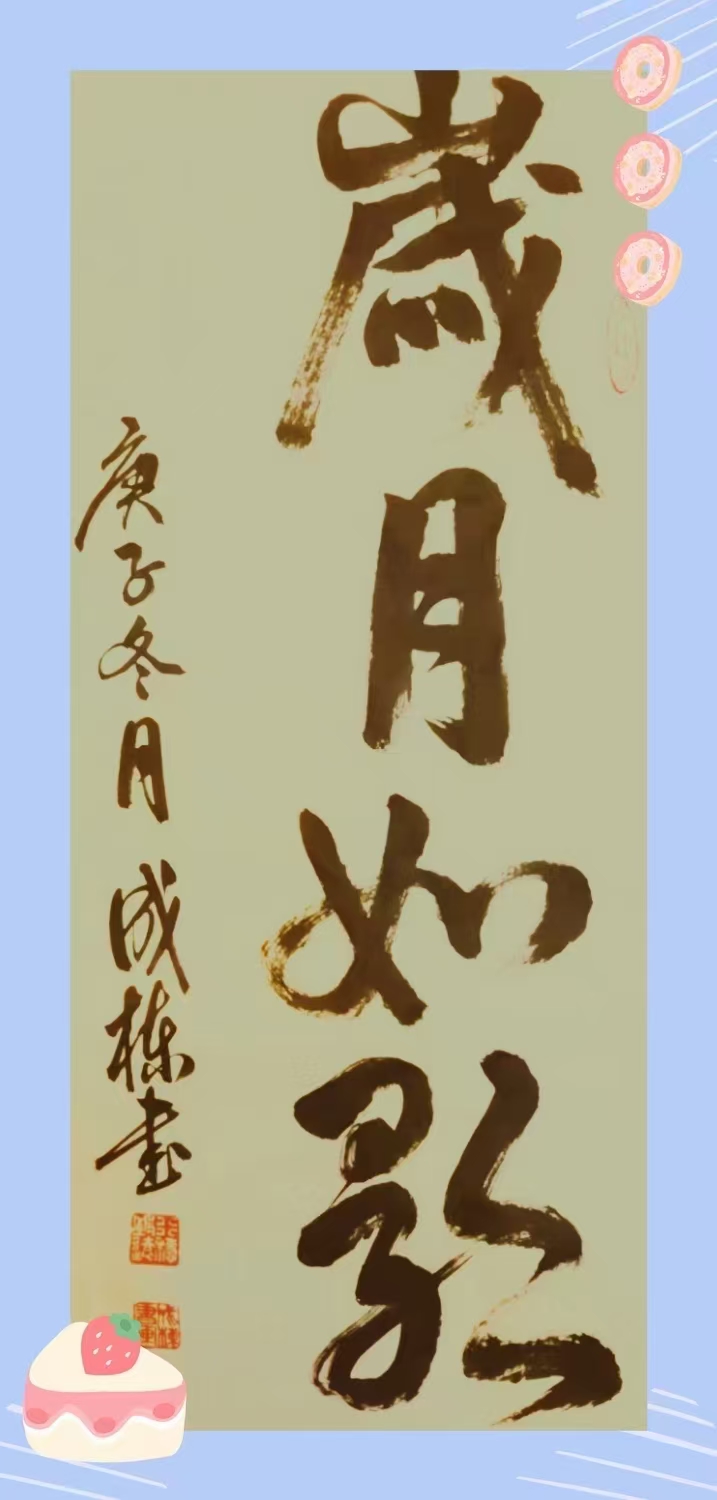 歲月如歌
庚子冬月 成栋書